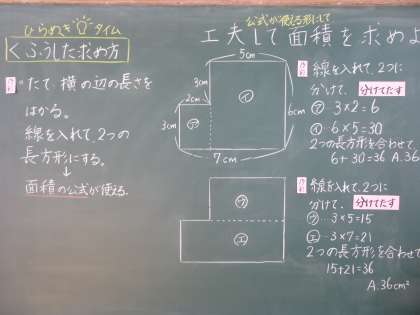 ひらめきタイム
くふうした求め方
たて、横の辺の長さを
はかる。
線を入れて、2つの
長方形にする。
↓
面積の公式が使える。
公式が使える形にして
工夫して面積を求めよ
5cm
3cm
2cm
3cm
6cm
7cm
㋐
㋑
線を入れて、2つに
分けて、分けてたす
㋐ 3×2=6
㋑ 6×5=30
2つの長方形を合わせて、
6+30=36 A.36
㋒
㋓
線を入れて、2つに
分けて、分けてたす
㋒…3×5=15
㋓…3×7=21
2つの長方形を合わせて
15+21=36
A.36cm²